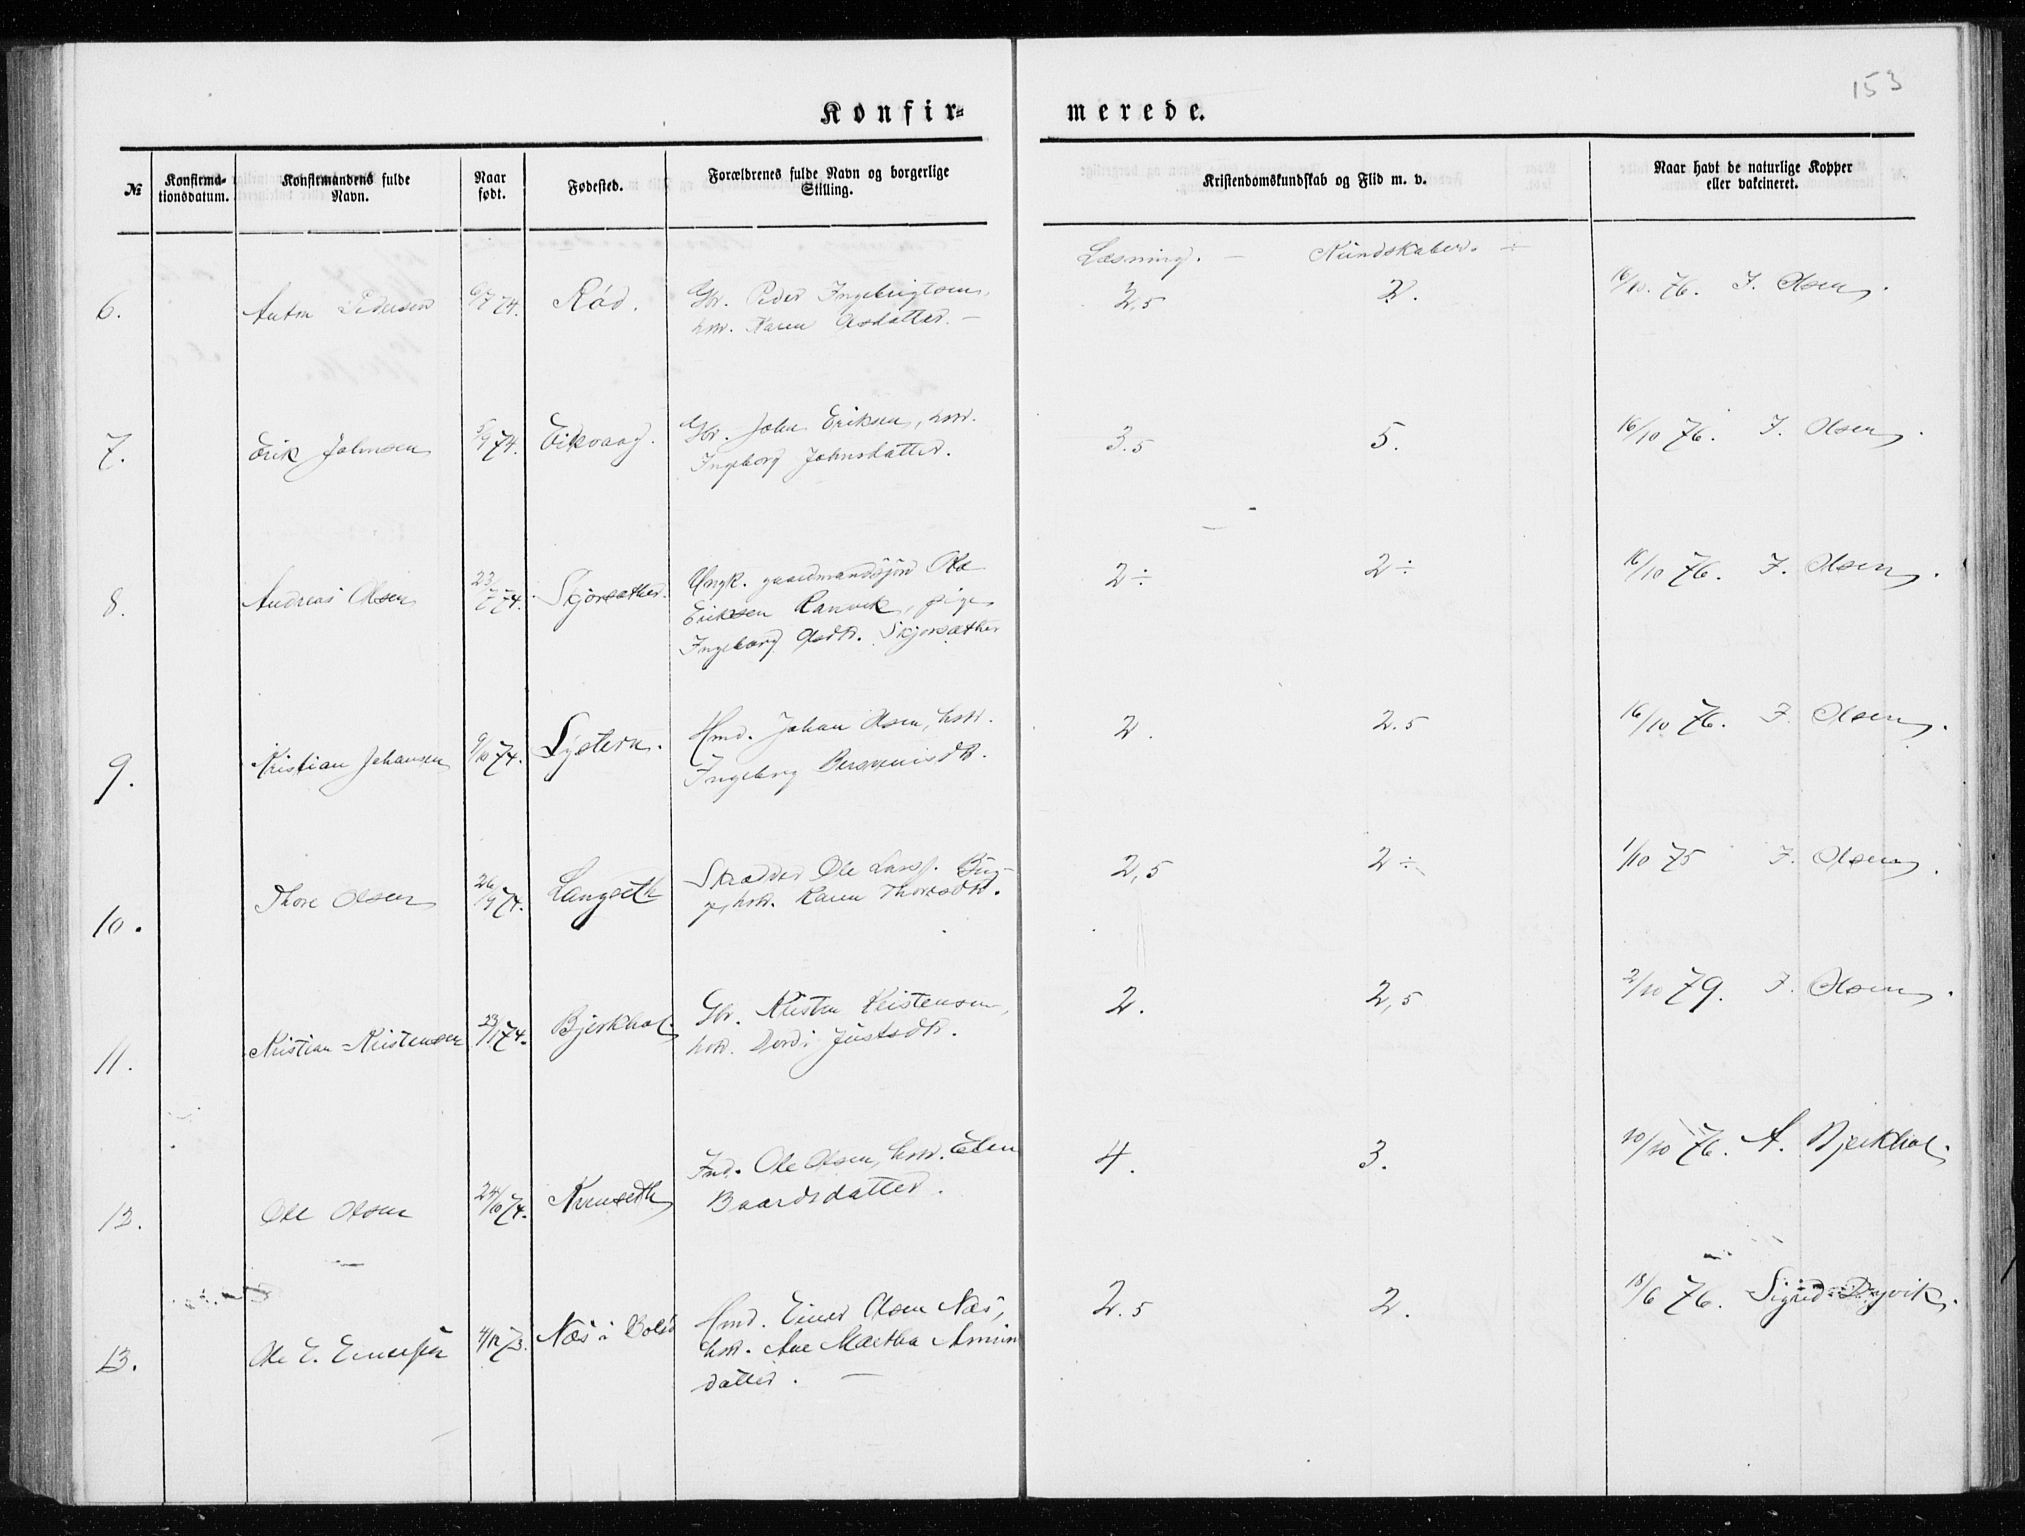 153
Konfir- merede.
№ Konfirma-tionsdatum. Konfirmandens fulde Navn. Naar født. Fødested. Forældrenes fulde Navn og borgerlige Stilling. Kristendomskundskab og Flid m. v. Naar havt de naturlige Kopper eller vakcineret.
Læsning. — Kundskaber. ÷
6. Anton Pedersen 6/7 74. Rød. Gbr. Peder Ingebrigtsen,
hstr. Karen Olsdatter. — 2,5 2. 16/10. 76. I. Olsen.
7. Erik Johnsen 5/9 74. Eikvaag. Gbr. John Eriksen, hstr.
Ingeborg Johnsdatter. 3.5 5. 16/10 76. I. Olsen.
8. Andreas Olsen 23/7 74. Skjørsæther. Ungk. gaardmandssøn Ola
Eriksen Ranvik, pige
Ingeborg Olsdtr. Skjørsæther 2 ÷ 2 ÷ 16/10 76. I. Olsen.
9. Kristian Johansen 9/10 74. Hmd. Johan Olsen, hstr.
Ingeborg 2. 2.5 16/10 76. I. Olsen.
10. Thore Olsen 26/9 74. Langseth Skrædder Ole Larss. Bug-
ge, hstr. Karen Thoresdtr. 2,5 2 ÷ 1/10 75 I. Olsen.
11. Kristian Kristensen 23/1 74. Bjerkhol. Gbr. Kristen Kristensen,
hstr. Dordi Justsdtr. 2. 2,5 2/10 79. I. Olsen.
12. Ole Olsen 24/10 74. Ind. Ole Olsen, hstr. Elen
Baardsdatter. 4. 3. 10/10 76. A. Bjerkhol.
13. Ole E. Einersen 4/12 73. Næs i Bolsø Hmd. Einer Olsen Næs,
hstr. Ane Martha Amun
datter. — 2.5 2. 18/6 76. Sigrid Dyvik.